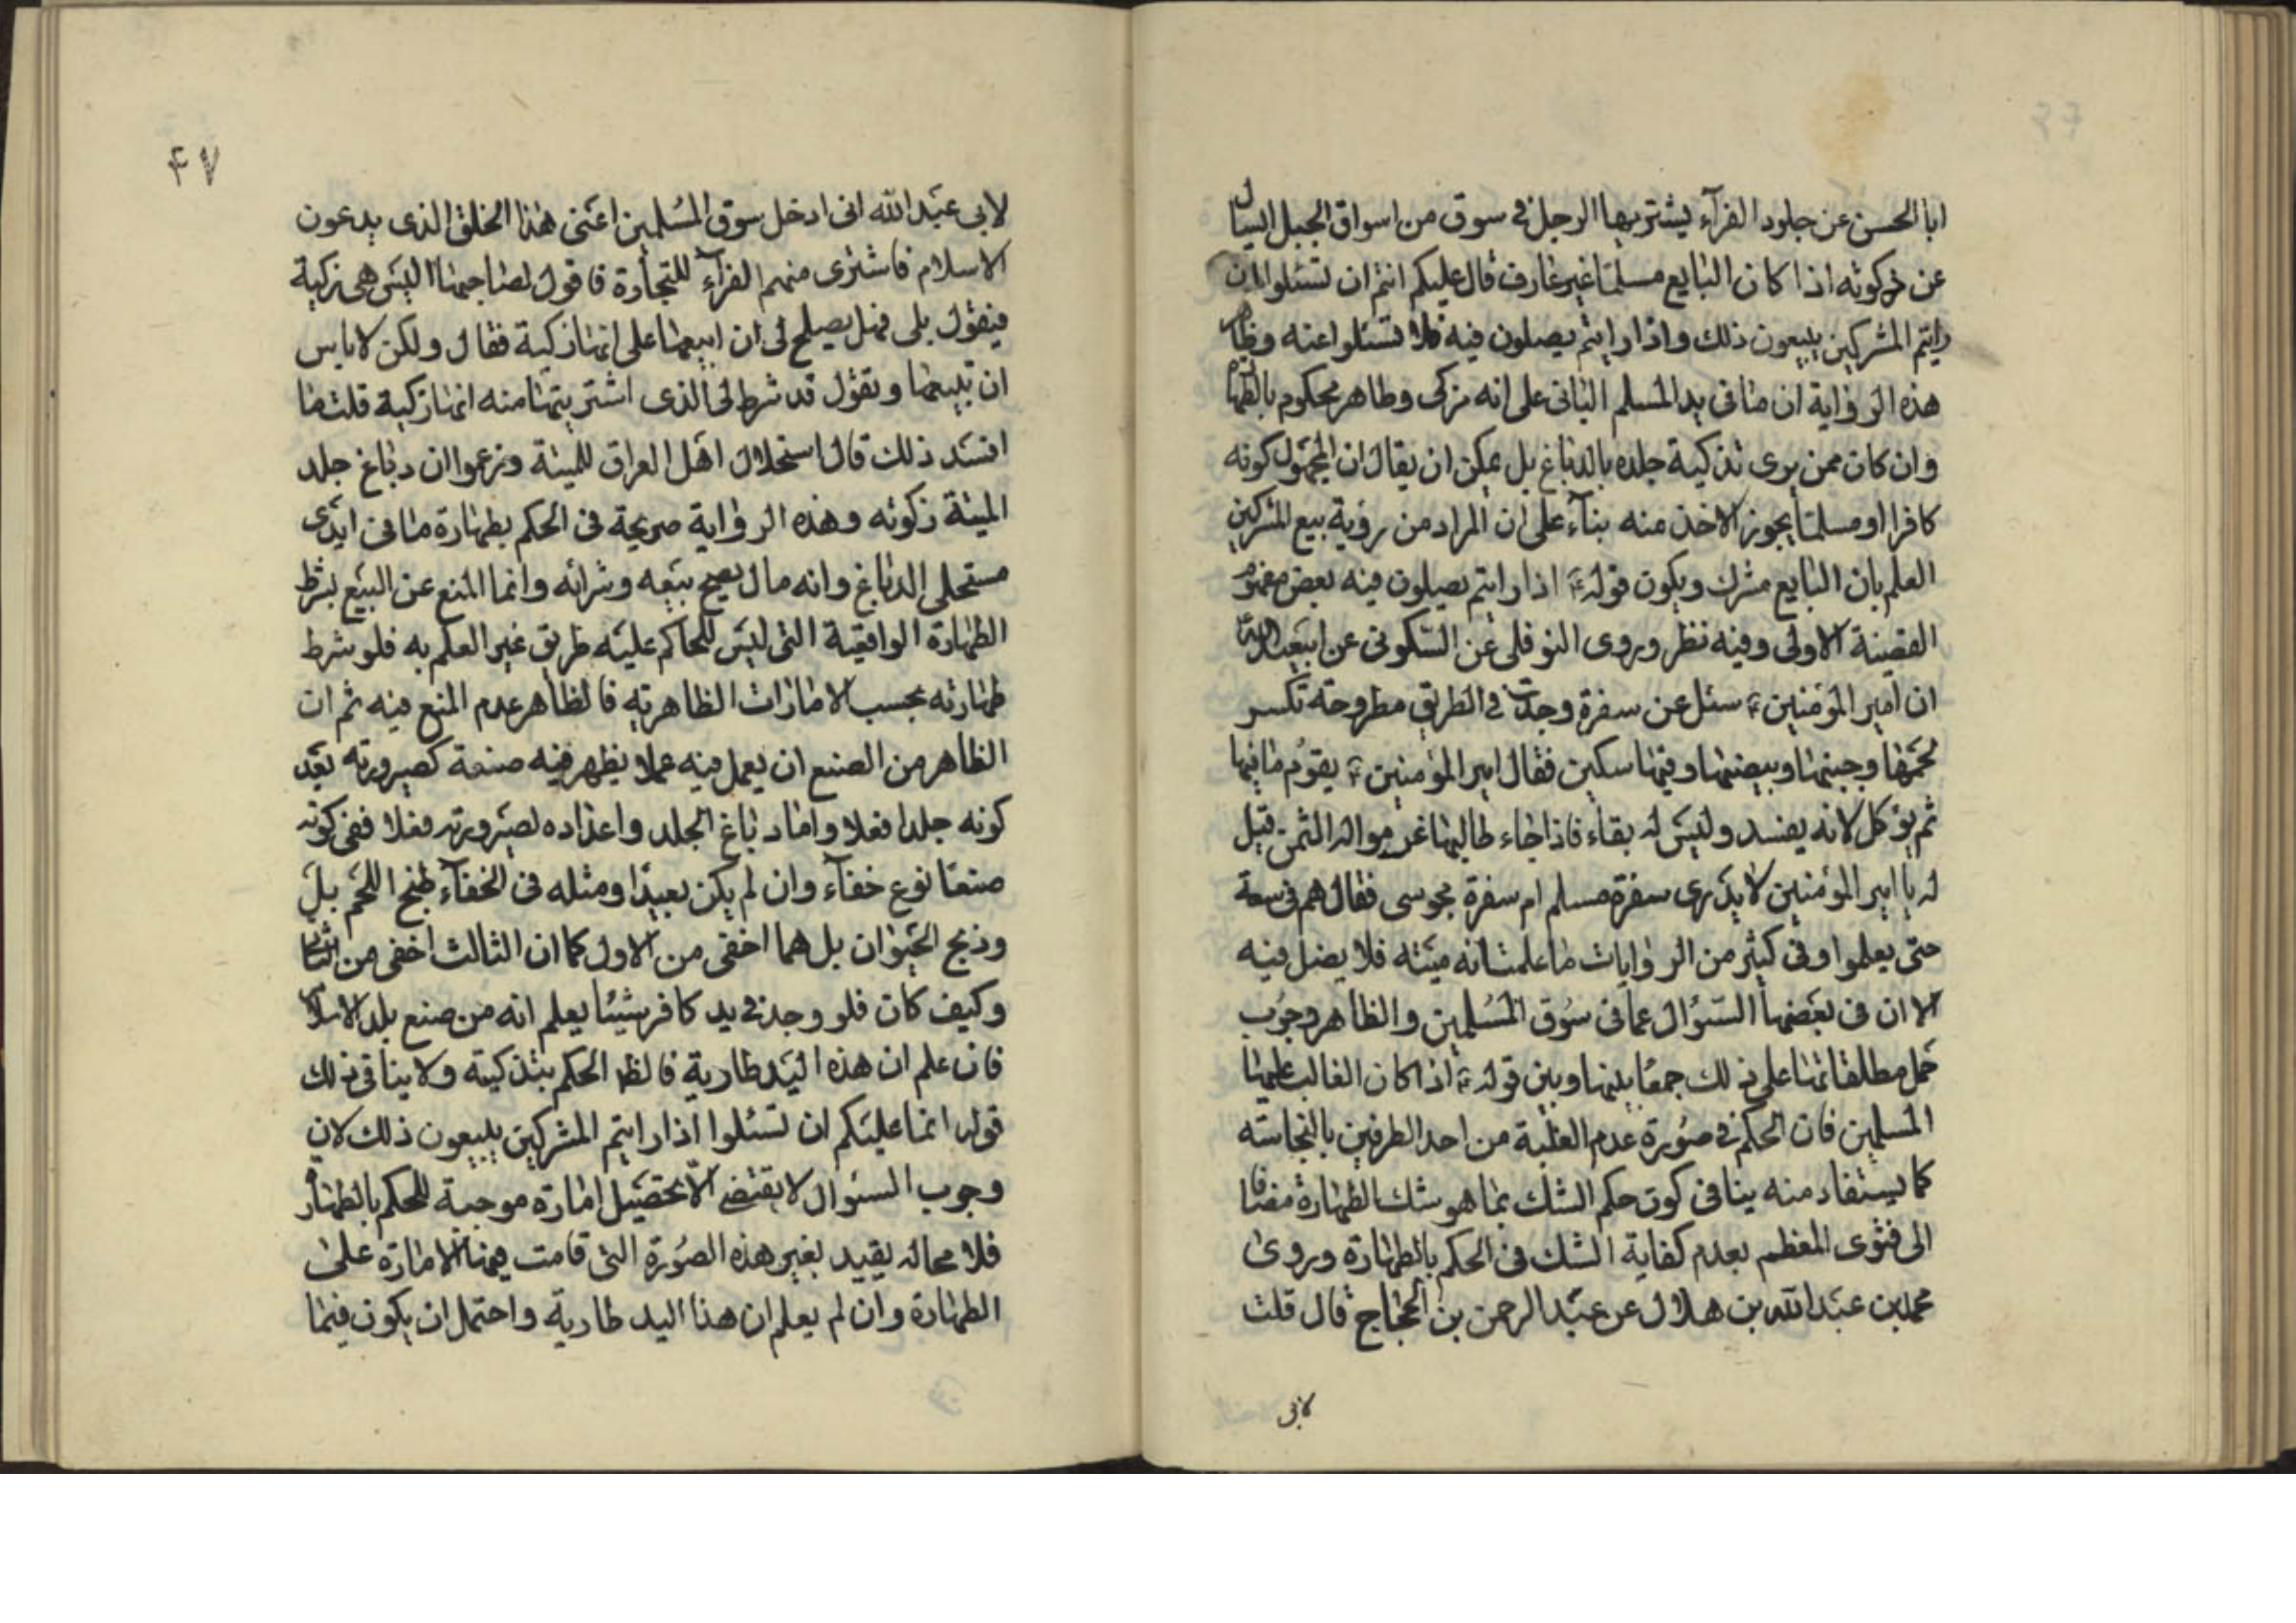 ابا الحسن عن جلود الفرآء يشتريها الرجل في سوق من اسواق الجبل ايسال
عن ذكوته اذا كان البايع مسلما غير عارف قال عليكم انتم ان تسئلوا اذا
رايتم المشركين يبيعون ذلك واذا رايتم يصلون فيه فلا تسئلوا عنه وظاهر
هذه الرواية ان ما في يد المسلم الباني على انه مزكى وطاهر محكوم بالطهارة
وان كان ممن يرى تذكية جلده بالدباغ بل يمكن ان يقال ان المجهول كونه
كافرا او مسلما يجوز الاخذ منه بناء على ان المراد من رؤية بيع المشركين
العلم بان البايع مشرك ويكون قوله ع اذا رايتم يصلون فيه بعض مفهوم
القضية الاولى وفيه نظر وروى النوفلى عن السكونى عن ابيعبد الله
ان امير المؤمنين ع سئل عن سفرة وجدت في الطريق مطروحة تكسر
لحمها وجبنها وبيضها وفيها سكين فقال امير المؤمنين ع يقوم ما فيها
ثم يؤكل لانه يفسد وليس له بقاء فاذا جاء طالبها غرموا له الثمن قيل
له يا امير المؤمنين لا يدرى سفرة مسلم ام سفرة مجوسى فقال هم في سعة
حتى يعلموا وفى كثير من الروايات ما علمت انه ميتة فلا يصل فيه
الا ان فى بعضها السؤال عما فى سوق المسلمين والظاهر وجوب
حمل مطلقاتها على ذلك جمعا بينها وبين قوله ع اذا كان الغالب عليها
المسلمين فان الحكم في صورة عدم الغلبة من احد الطرفين بالنجاسته
كما يستفاد منه ينافى كون حكم الشك بما هو شك الطهارة مضافا
الى فتوى المعظم بعدم كفاية الشك فى الحكم بالطهارة وروى
محمد بن عبد الله بن هلال عن عبد الرحمن بن الحجاج قال قلت
لابى
۴۷
لابى عبد الله انى ادخل سوق المسلمين اعنى هذا الخلق الذى يدعون
الاسلام فاشترى منهم الفرآء للتجارة فاقول لصاحبها اليس هى زكية
فيقول بلى فهل يصلح لى ان ابيعها على انها زكية فقال ولكن لا باس
ان تبيعها وتقول قد شرط لى الذى اشتريتها منه انها زكية قلت ما
افسد ذلك قال استحلال اهل العراق للميتة وزعموا ان دباغ جلد
الميتة زكوته وهذه الرواية صريحة فى الحكم بطهارة ما فى ايدى
مستحلى الدباغ وانه مال يصح بيعه وشرائه وانما المنع عن البيع بشرط
الطهارة الواقعية التى ليس للحاكم عليه طريق غير العلم به فلو شرط
طهارته بحسب الامارات الظاهرية فالظاهر عدم المنع فيه ثم ان
الظاهر من الصنع ان يعمل فيه عملا يظهر فيه صنعة كصيرورته بعد
كونه جلدا فعلا واما دباغ الجلد واعداده لصيرورته فعلا ففى كونه
صنعا نوع خفآء وان لم يكن بعيدا ومثله فى الخفآء طبخ اللحم بل
وذبح الحيوان بل هما اخفى من الاول كما ان الثالث اخفى من الثانى
وكيف كان فلو وجد في يد كافر شيئا يعلم انه من صنع بلد الاسلام
فان علم ان هذه اليد طارية فالظ الحكم بتذكيته ولا ينافى ذلك
قوله انما عليكم ان تسئلوا اذا رايتم المشركين يبيعون ذلك لان
وجوب السئوال لا يقتضى الا تحصيل امارة موجبة للحكم بالطهارة
فلا محاله يقيد بغير هذه الصورة التى قامت فيها الامارة على
الطهارة وان لم يعلم ان هذا اليد طارية واحتمل ان يكون فيما